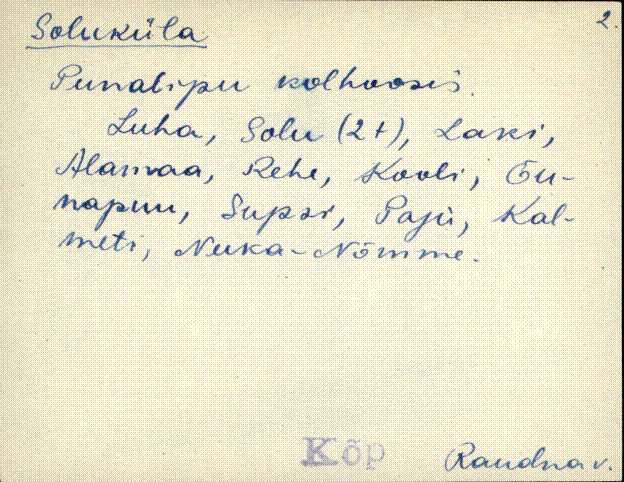 2.
Soluküla
Punalipu kolhoosis.
Luha, Solu (2t), Laksi,
Alamaa, Rehe, Kooli, Õu-
napuu, Supsi, Paju, Kal-
meti, Nuka-Nõmme.
Kõp Raudna v.